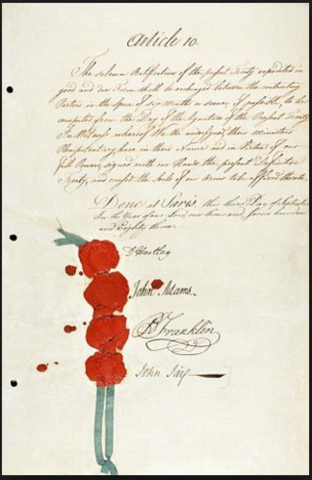 Article 10.
The solemn Ratifications of the present Treaty expedited in
good and due Form shall be exchanged between the contracting
Parties in the Space of Six Months or sooner if possible, to be
computed from the Day of the Signature of the present Treaty
In Witness whereof We the undersigned their Ministers
Plenipotentiary have in their Name and in Virtue of our
Full Powers signed with our Hands the present Definitive
Treaty, and caused the Seals of our Arms to be affix'd thereto.
Done at Paris this third Day of September
In the Year of our Lord one thousand seven hundred
and Eighty three.
D Hartley
John Adams.
B Franklin
John Jay